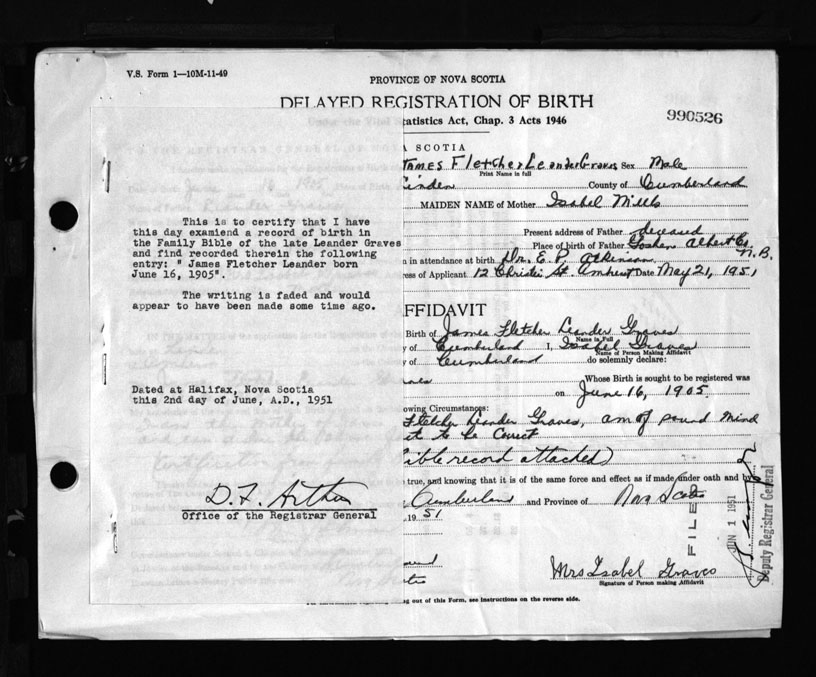 V.S. Form 1—10M-11-49
PROVINCE OF NOVA SCOTIA
DELAYED REGISTRATION OF BIRTH
990526
tatistics Act, Chap. 3 Acts 1946
A SCOTIA
JAMES Fletcher Leander Graves Sex Male
Print Name in full
Linden County of Cumberland
MAIDEN NAME of Mother Isabel Mills
Present address of Father deceased
Place of birth of Father Goshen Albert Co. N.B.
n in attendance at birth Dr. E. P. Atkinson
ress of Applicant 12 Christie St. Amherst Date May 21, 1951
This is to certify that I have
this day examiend a record of birth in
the Family Bible of the late Leander Graves
and find recorded therein the following
entry: " James Fletcher Leander born
June 16, 1905".
The writing is faded and would
appear to have been made some time ago.
Dated at Halifax, Nova Scotia
this 2nd day of June, A.D., 1951
D. F. Arthur
Office of the Registrar General
FFIDAVIT
Birth of James Fletcher Leander Graves
Name in Full
y of Cumberland I, Isabel Graves
Name of Person Making Affidavit
y of Cumberland do solemnly declare:
Whose Birth is sought to be registered was
on June 16, 1905.
owing Circumstances:
Fletcher Leander Graves, am of sound mind
it to be Correct
ible record attached)
true, and knowing that it is of the same force and effect as if made under oath and by
Cumberland and Province of Nova Scotia
19 51
FILED
JUN 1 1951
Deputy Registrar General
Mrs Isabel Graves
Signature of Person making Affidavit
ng out of this Form, see instructions on the reverse side.